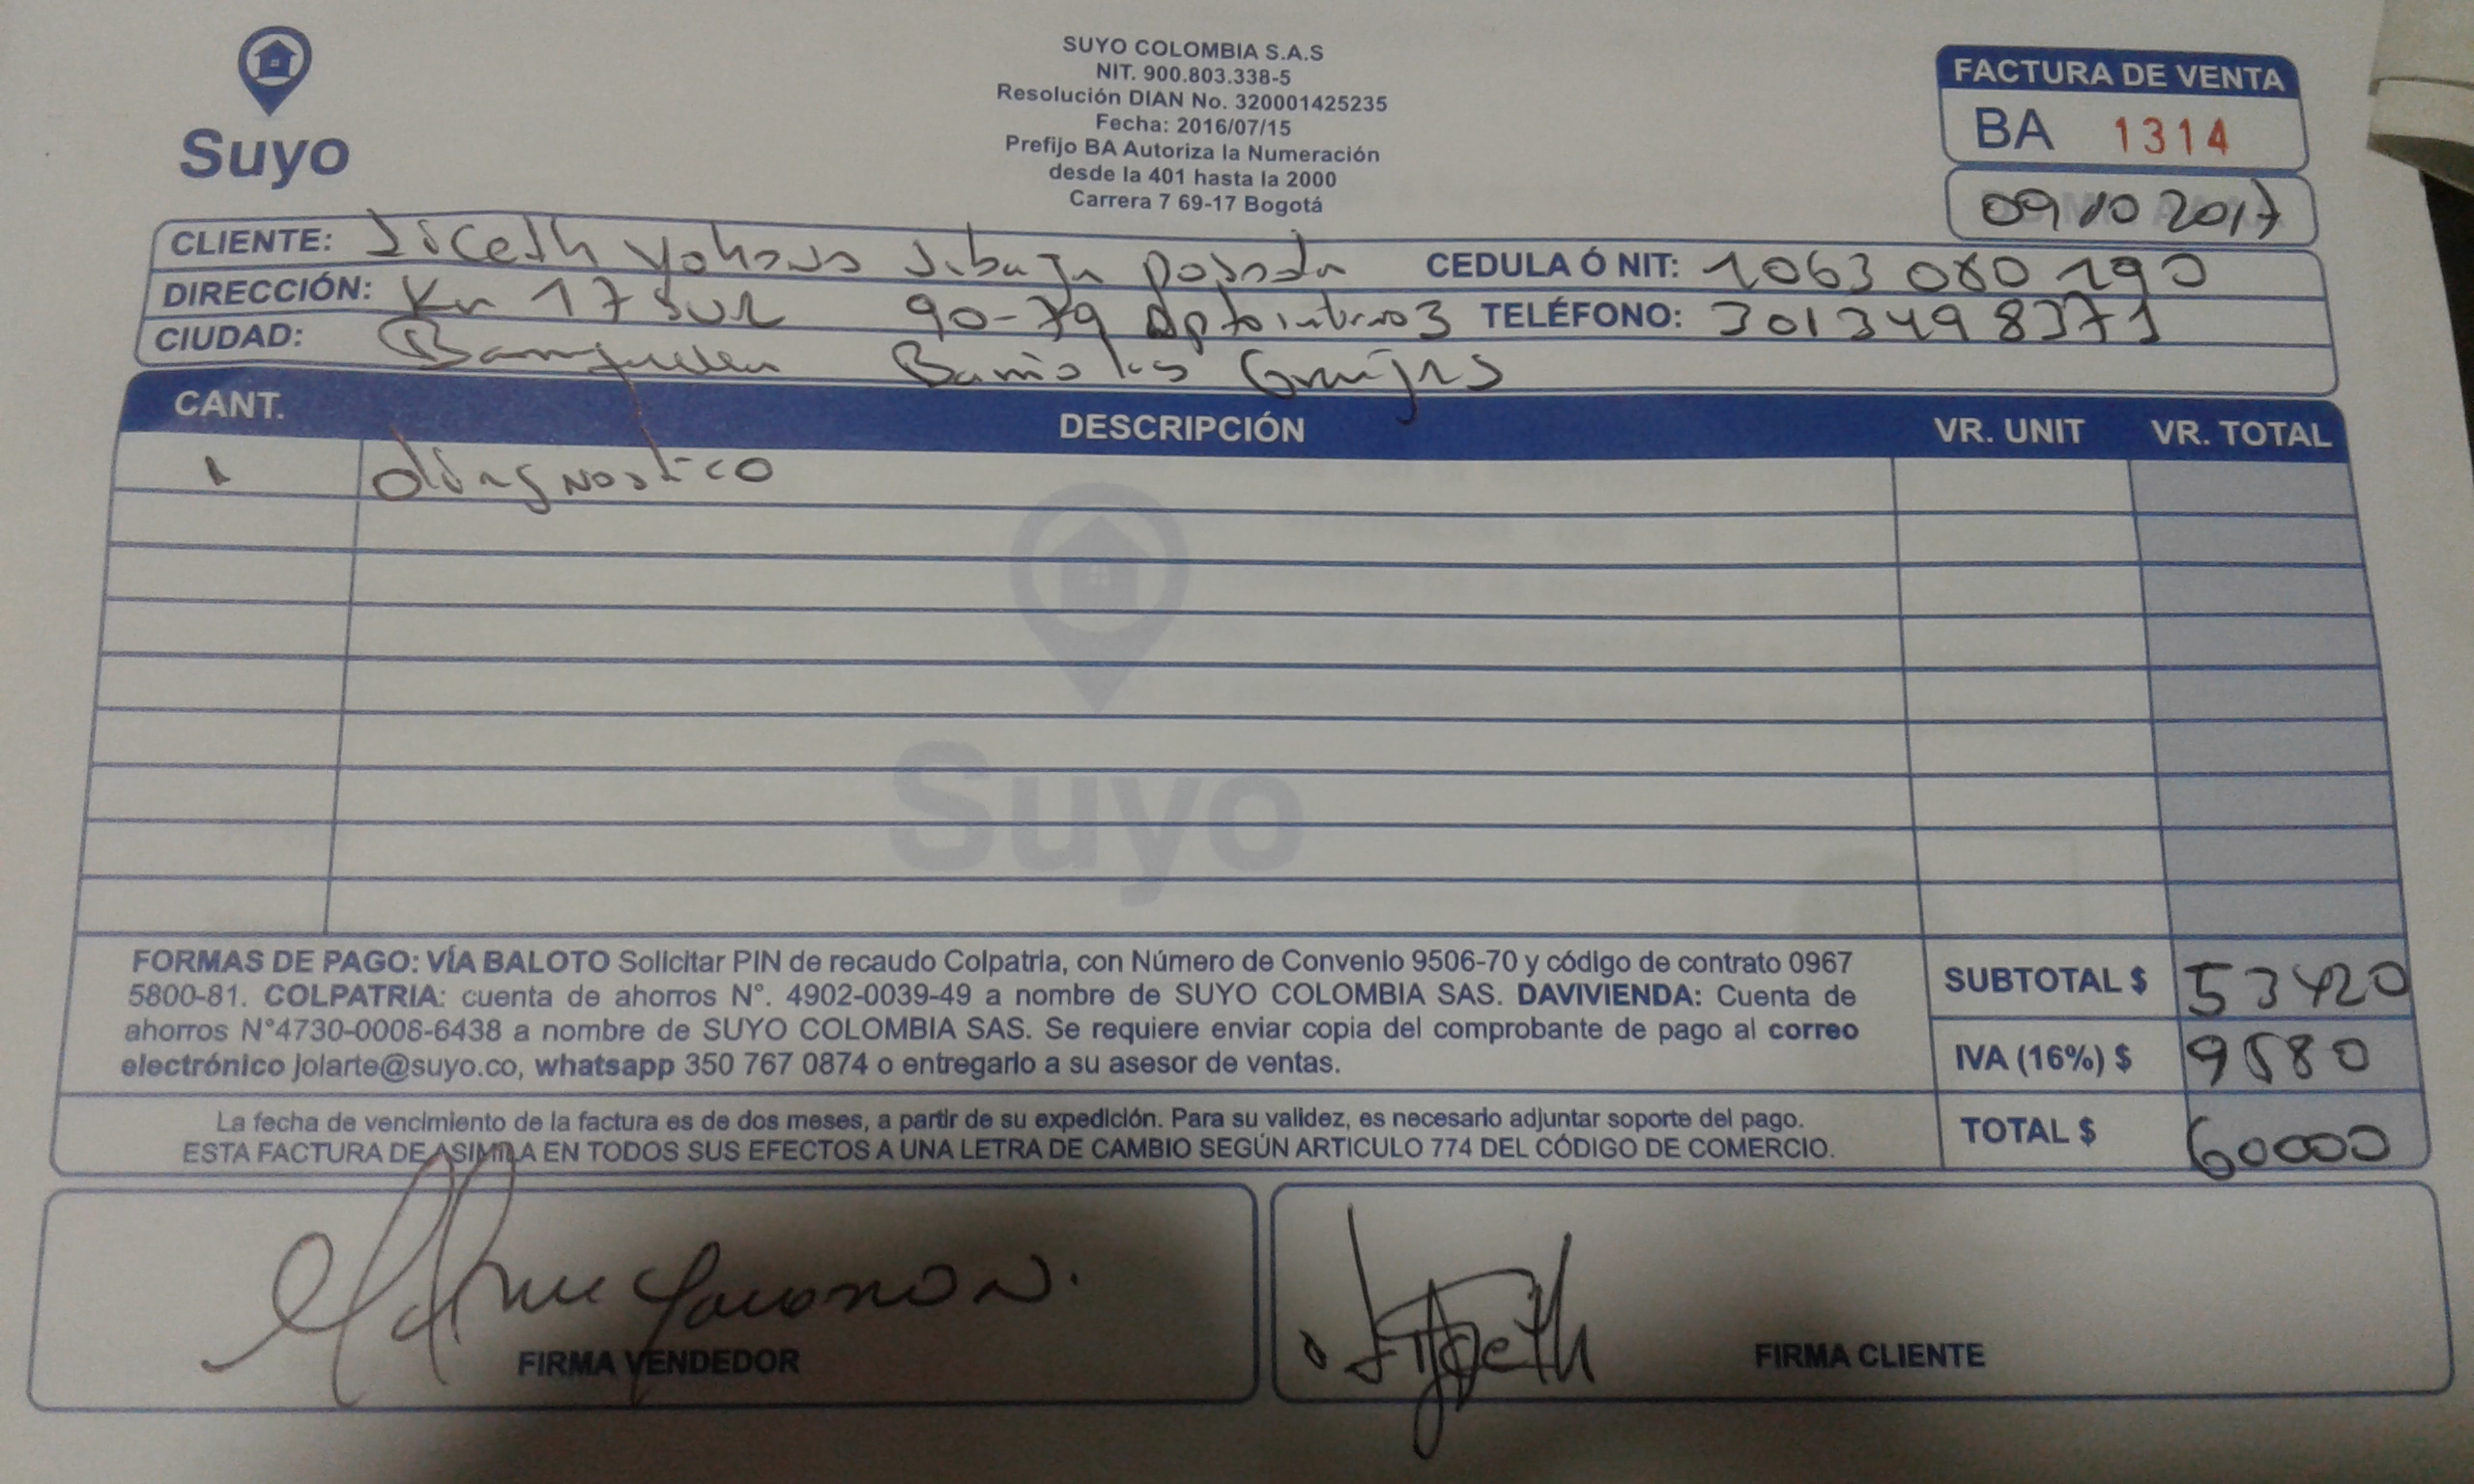 Suyo
SUYO COLOMBIA S.A.S
NIT. 900.803.338-5
Resolución DIAN No. 320001425235
Fecha: 2016/07/15
Prefijo BA Autoriza la Numeración
desde la 401 hasta la 2000
Carrera 7 69-17 Bogotá
FACTURA DE VENTA
BA 1314
09 10 2017
CLIENTE: Liceth Yohana Sibaja Posada CEDULA Ó NIT: 1063080190
DIRECCIÓN: Kr 17 SUR 90-79 Apto interno 3 TELÉFONO: 3013498371
CIUDAD: Barranquilla Barrio las
CANT. DESCRIPCIÓN VR. UNIT VR. TOTAL
1 diagnostico
Suyo
FORMAS DE PAGO: VÍA BALOTO Solicitar PIN de recaudo Colpatria, con Número de Convenio 9506-70 y código de contrato 0967
5800-81. COLPATRIA: cuenta de ahorros N°. 4902-0039-49 a nombre de SUYO COLOMBIA SAS. DAVIVIENDA: Cuenta de
ahorros N°4730-0008-6438 a nombre de SUYO COLOMBIA SAS. Se requiere enviar copia del comprobante de pago al correo
electrónico jolarte@suyo.co, whatsapp 350 767 0874 o entregarlo a su asesor de ventas.
SUBTOTAL $ 53420
IVA (16%) $ 9580
TOTAL $ 60000
La fecha de vencimiento de la factura es de dos meses, a partir de su expedición. Para su validez, es necesario adjuntar soporte del pago.
ESTA FACTURA DE ASIMILA EN TODOS SUS EFECTOS A UNA LETRA DE CAMBIO SEGÚN ARTICULO 774 DEL CÓDIGO DE COMERCIO.
FIRMA VENDEDOR
FIRMA CLIENTE